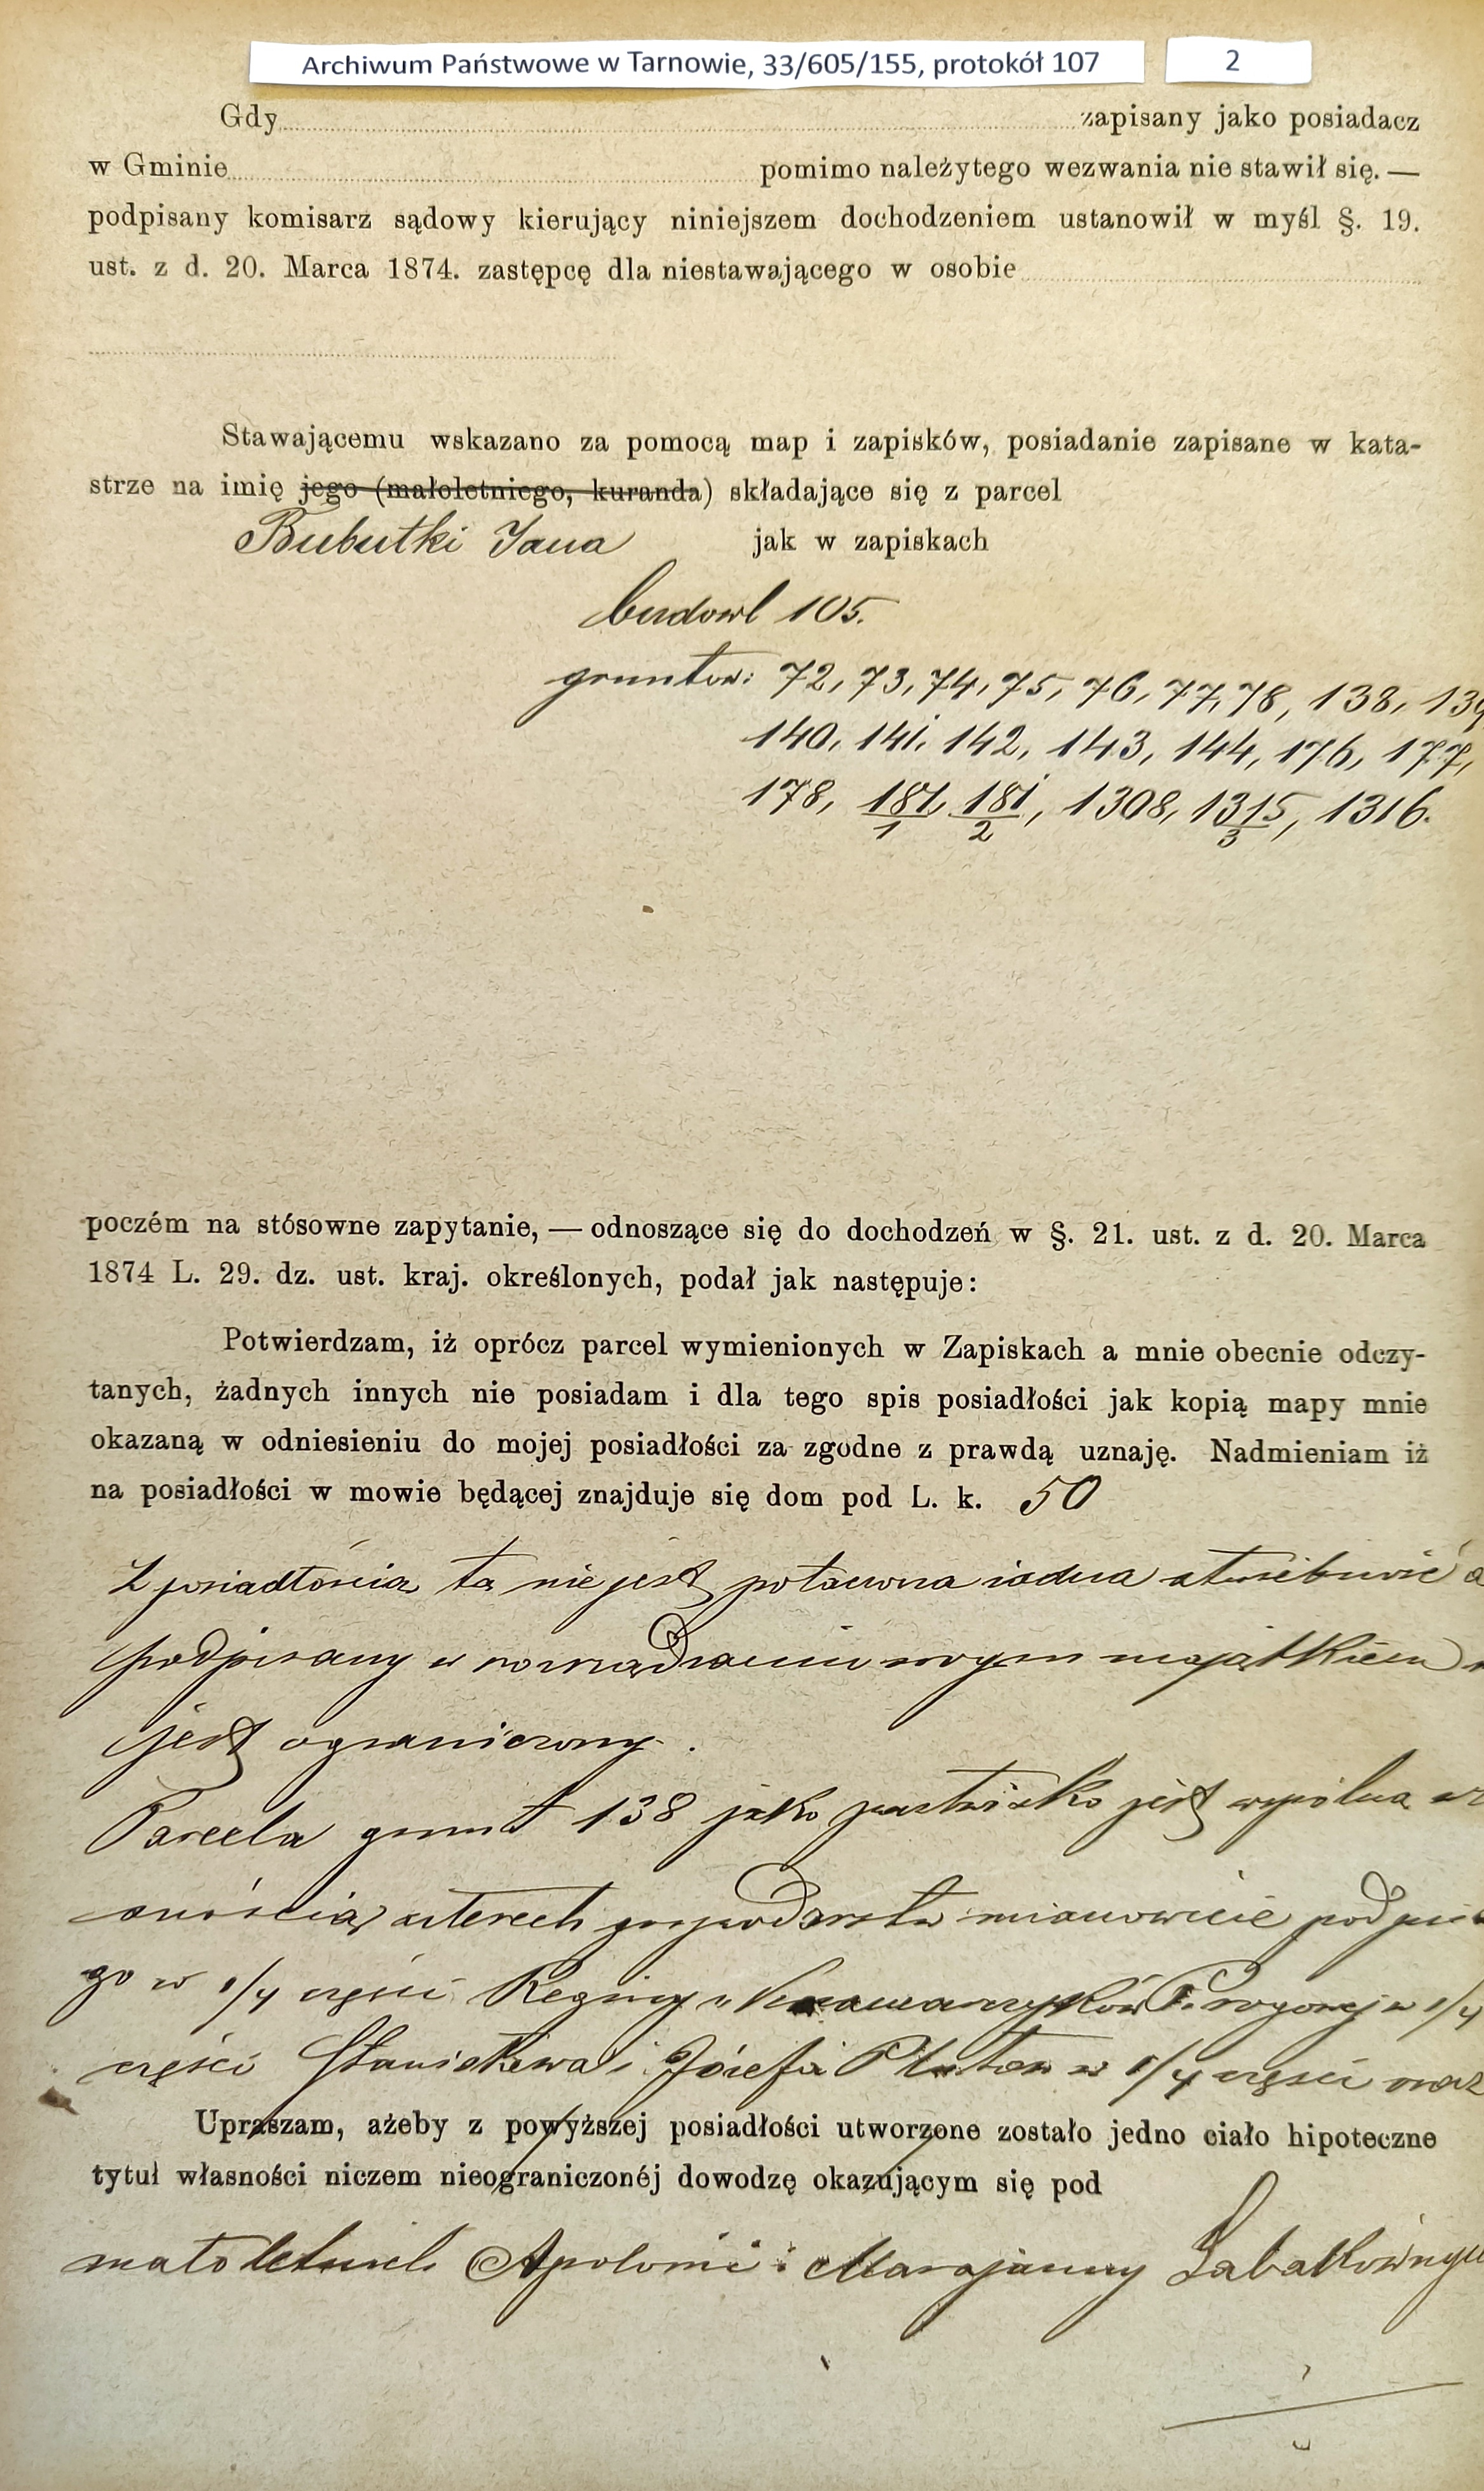 Archiwum Państwowe w Tarnowie, 33/605/155, protokół 107 2
Gdy zapisany jako posiadacz
w Gminie pomimo należytego wezwania nie stawił się. —
podpisany komisarz sądowy kierujący niniejszem dochodzeniem ustanowił w myśl §. 19.
ust. z d. 20. Marca 1874. zastępcę dla niestawającego w osobie
Stawającemu wskazano za pomocą map i zapisków, posiadanie zapisane w kata-
strze na imię jego (małoletniego, kuranda) składające się z parcel
Bubutki Jana jak w zapiskach
budowl 105.
gruntow: 72, 73, 74, 75, 76, 77, 78, 138, 139
140, 141, 142, 143, 144, 176, 177,
178, 181/1, 181/2, 1308, 1315/3, 1316.
poczém na stósowne zapytanie, — odnoszące się do dochodzeń w §. 21. ust. z d. 20. Marca
1874 L. 29. dz. ust. kraj. określonych, podał jak następuje:
Potwierdzam, iż oprócz parcel wymienionych w Zapiskach a mnie obecnie odczy-
tanych, żadnych innych nie posiadam i dla tego spis posiadłości jak kopią mapy mnie
okazaną w odniesieniu do mojej posiadłości za zgodne z prawdą uznaję. Nadmieniam iż
na posiadłości w mowie będącej znajduje się dom pod L. k. 50
Z posiadłością tą nie jest połączona żadna służebność a
podpisany w rozrządzaniu swym majątkiem
jest ograniczony.
Parcela grunt 138 jako pastwisko jest wspólną wł
snością czterech gospodarstw mianowicie podpisa
go w 1/4 części Reginy w 1/4
części Stanisława i Józefa w 1/4 części oraz
Upraszam, ażeby z powyższej posiadłości utworzone zostało jedno ciało hipoteczne
tytuł własności niczem nieograniczonéj dowodzę okazującym się pod
małoletnich Apolonii i Maryjanny